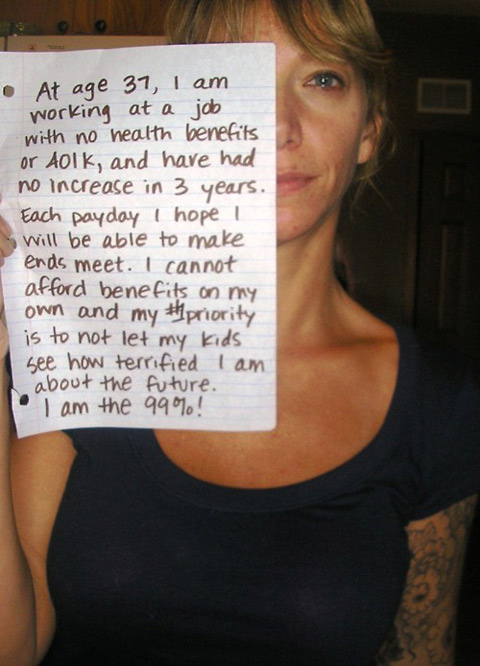 At age 37, I am
working at a job
with no health benefits
or 401K, and have had
no increase in 3 years.
Each payday I hope I
will be able to make
ends meet. I cannot
afford benefits on my
own and my #1 priority
is to not let my kids
see how terrified I am
about the future.
I am the 99%!